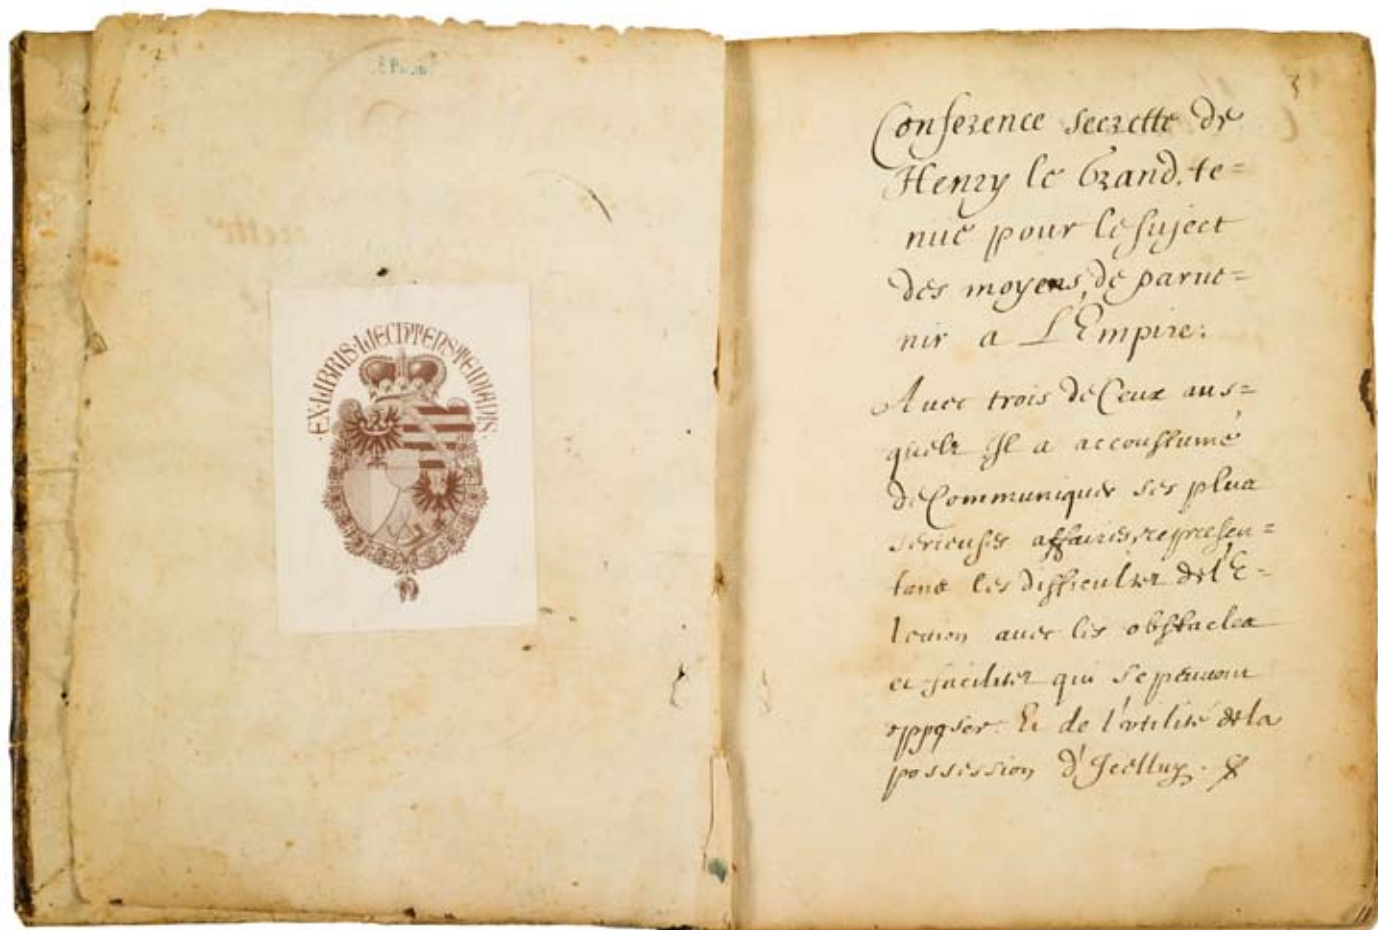 2
EX·LIBRIS·LIECHTENSTEINIANIS·
3
Conference secrette de
Henry le Grand, te=
nuë pour le suject
des moyens, de parue=
nir a L'Empire:
Auec trois de Ceux aus=
quelz Jl a accoustumé
de Communiquer ses plus
serieuses affaires, represen=
tans les difficultez de l'E=
lection auec les obstacles
et facilitez qui se peuuent
opposer. Et de l'vtilité de la
possession d'Jcelluy.